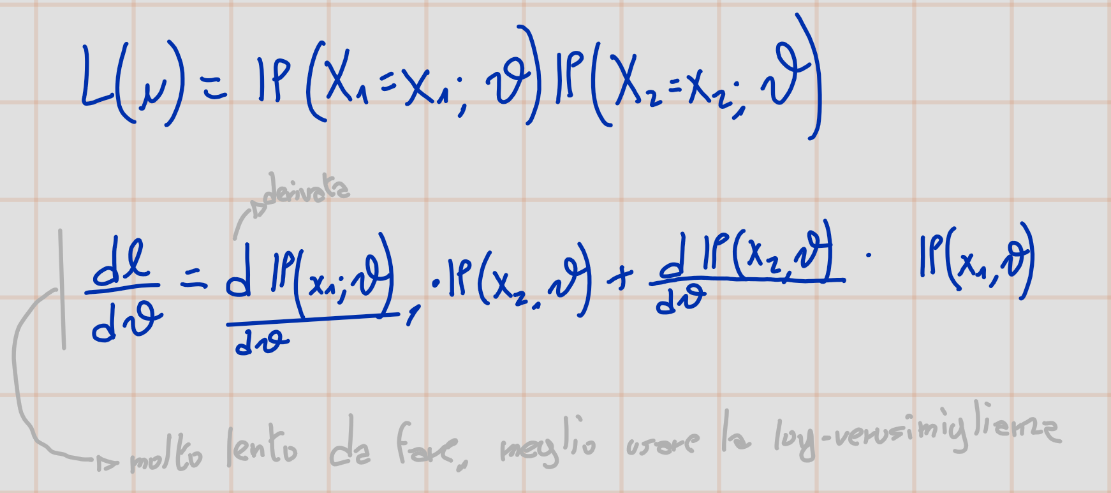 L(μ) = ℙ(X₁=x₁; ϑ) ℙ(X₂=x₂; ϑ)
derivata
dℓ/dϑ = dℙ(x₁; ϑ)/dϑ · ℙ(x₂, ϑ) + dℙ(x₂, ϑ)/dϑ · ℙ(x₁, ϑ)
molto lento da fare, meglio usare la log-verosimiglianza